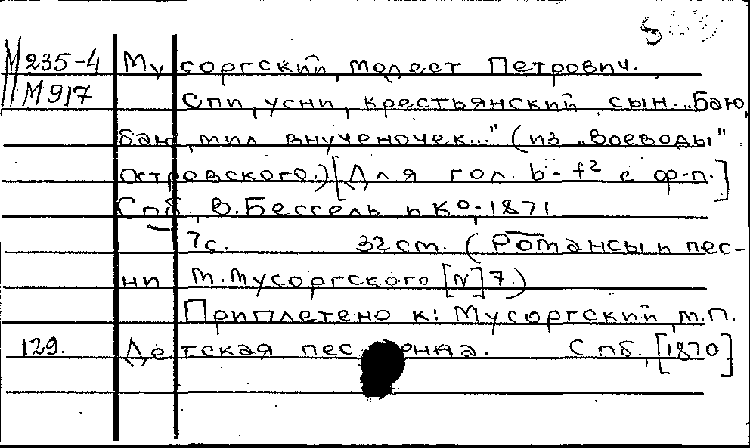 М 235-4 Мусоргский, Модест Петрович.
М917
Спи, усни, крестьянский сын. „Баю,
баю, мил внученочек..." (из „Воеводы"
Островского.) [Для гол. b-f² с ф-п.]
Спб, В. Бессель и Ко, 1871.
7с. 32 см. (Романсы и пес-
ни М. Мусоргского [N] 7.)
Приплетено к: Мусоргский, М.П.
129. Детская песенка. Спб, [1870]